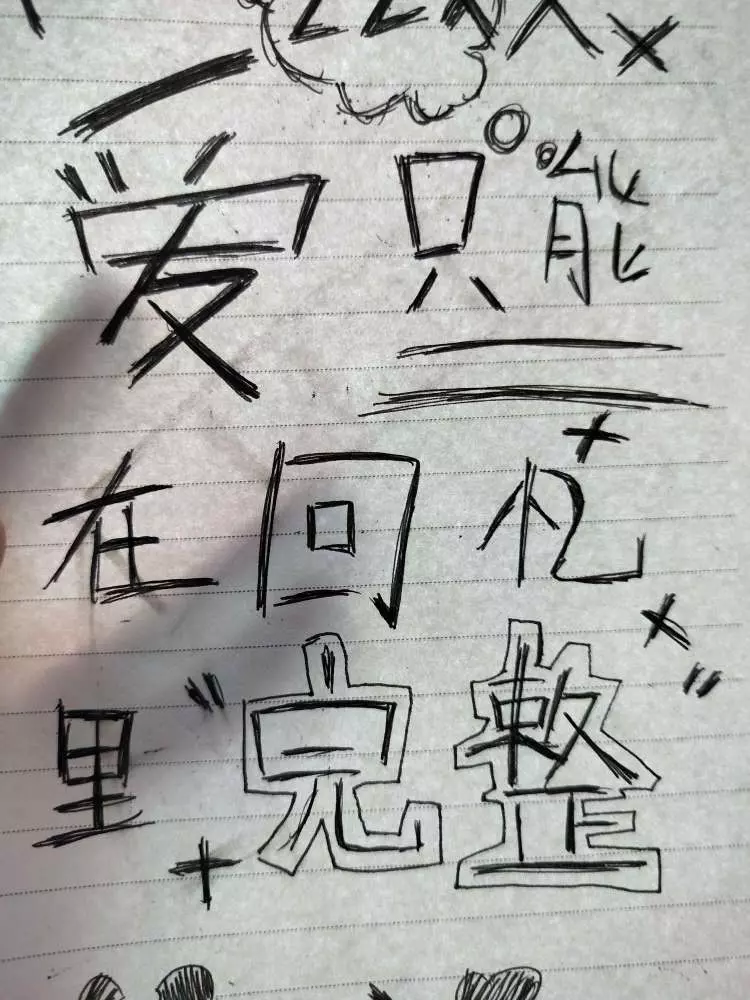 爱只能
在回忆
里"完整"